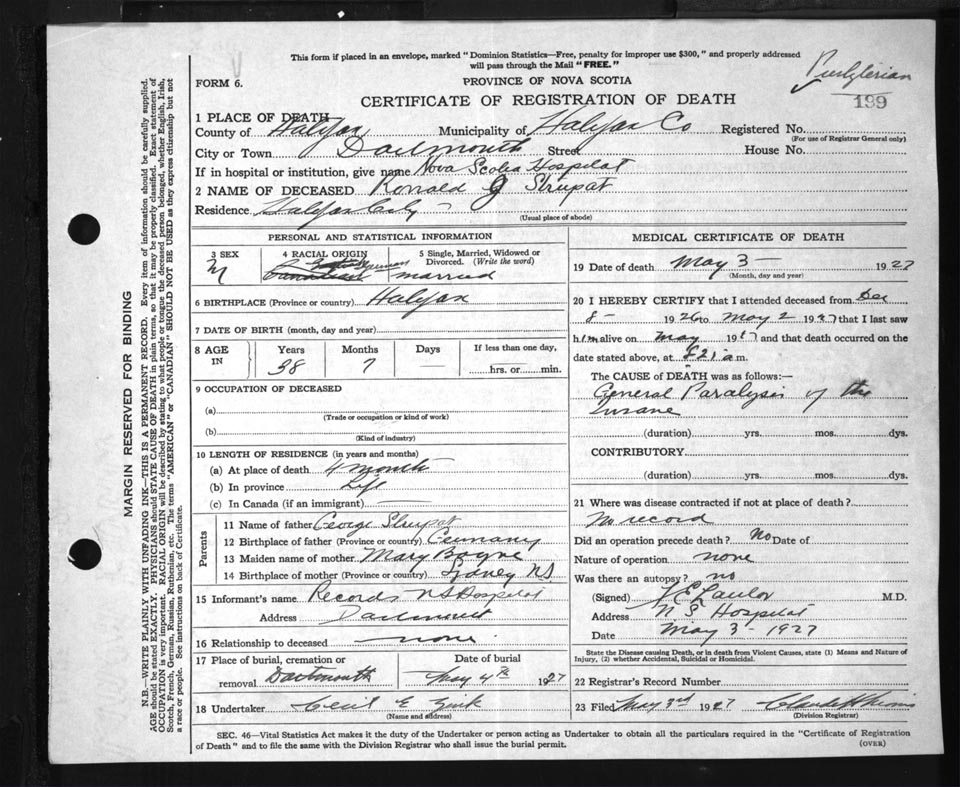 This form if placed in an envelope, marked "Dominion Statistics—Free, penalty for improper use $300," and properly addressed
will pass through the Mail "FREE."
Presbyterian
199
FORM 6.
PROVINCE OF NOVA SCOTIA
CERTIFICATE OF REGISTRATION OF DEATH
1 PLACE OF DEATH
County of Halifax Municipality of Halifax Co Registered No.
(For use of Registrar General only)
City or Town Dartmouth Street House No.
If in hospital or institution, give name Nova Scotia Hospital
2 NAME OF DECEASED Ronald G Strupat
Residence Halifax City
(Usual place of abode)
PERSONAL AND STATISTICAL INFORMATION
3 SEX 4 RACIAL ORIGIN 5 Single, Married, Widowed or Divorced. (Write the word)
M German married
6 BIRTHPLACE (Province or country) Halifax
7 DATE OF BIRTH (month, day and year)
8 AGE IN Years Months Days If less than one day,
38 7 — hrs. or min.
9 OCCUPATION OF DECEASED
(a)
(Trade or occupation or kind of work)
(b)
(Kind of industry)
10 LENGTH OF RESIDENCE (in years and months)
(a) At place of death 4 month
(b) In province Life
(c) In Canada (if an immigrant)
Parents
11 Name of father George Strupat
12 Birthplace of father (Province or country) Germany
13 Maiden name of mother Mary Bayne
14 Birthplace of mother (Province or country) Sydney NS
15 Informant's name Records NS Hospital
Address Dartmouth
16 Relationship to deceased none
17 Place of burial, cremation or removal Dartmouth Date of burial May 4th 1927
18 Undertaker Cecil E Zink
(Name and address)
MEDICAL CERTIFICATE OF DEATH
19 Date of death May 3 — 1927
(Month, day and year)
20 I HEREBY CERTIFY that I attended deceased from Dec
8 - 1926 to May 2 1927 that I last saw
him alive on May 1927 and that death occurred on the
date stated above, at 8 21 a m.
The CAUSE of DEATH was as follows:—
General Paralysis of the
Insane
(duration) yrs. mos. dys.
CONTRIBUTORY
(duration) yrs. mos. dys.
21 Where was disease contracted if not at place of death?
No record
Did an operation precede death? No Date of
Nature of operation none
Was there an autopsy? no
(Signed) Lawlor M.D.
Address N.S Hospital
Date May 3 - 1927
State the Disease causing Death, or in death from Violent Causes, state (1) Means and Nature of
Injury, (2) whether Accidental, Suicidal or Homicidal.
22 Registrar's Record Number
23 Filed May 3rd 1927
(Division Registrar)
SEC. 46—Vital Statistics Act makes it the duty of the Undertaker or person acting as Undertaker to obtain all the particulars required in the "Certificate of Registration
of Death" and to file the same with the Division Registrar who shall issue the burial permit.
(OVER)
MARGIN RESERVED FOR BINDING
N.B.—WRITE PLAINLY WITH UNFADING INK—THIS IS A PERMANENT RECORD. Every item of information should be carefully supplied.
AGE should be stated EXACTLY. PHYSICIANS should STATE CAUSE OF DEATH in plain terms, so that it may be properly classified. Exact statement of
OCCUPATION is very important. RACIAL ORIGIN will be described by stating to what people or tongue the deceased person belonged, whether English, Irish,
Scotch, French, German, Russian, Ruthenian, etc. The terms "AMERICAN" or "CANADIAN" SHOULD NOT BE USED as they express citizenship but not
a race or people. See instructions on back of Certificate.